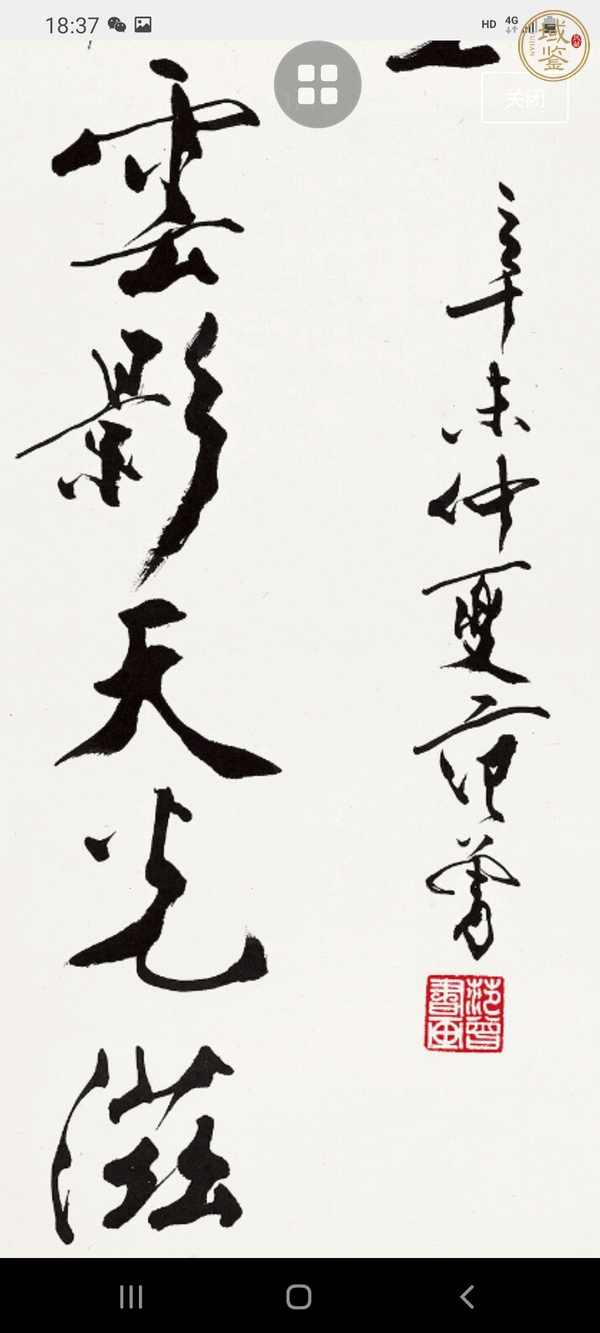 18:37
HD 4G
域鉴
关闭
雲影天光滋
辛未仲夏 范曾
范曾書画